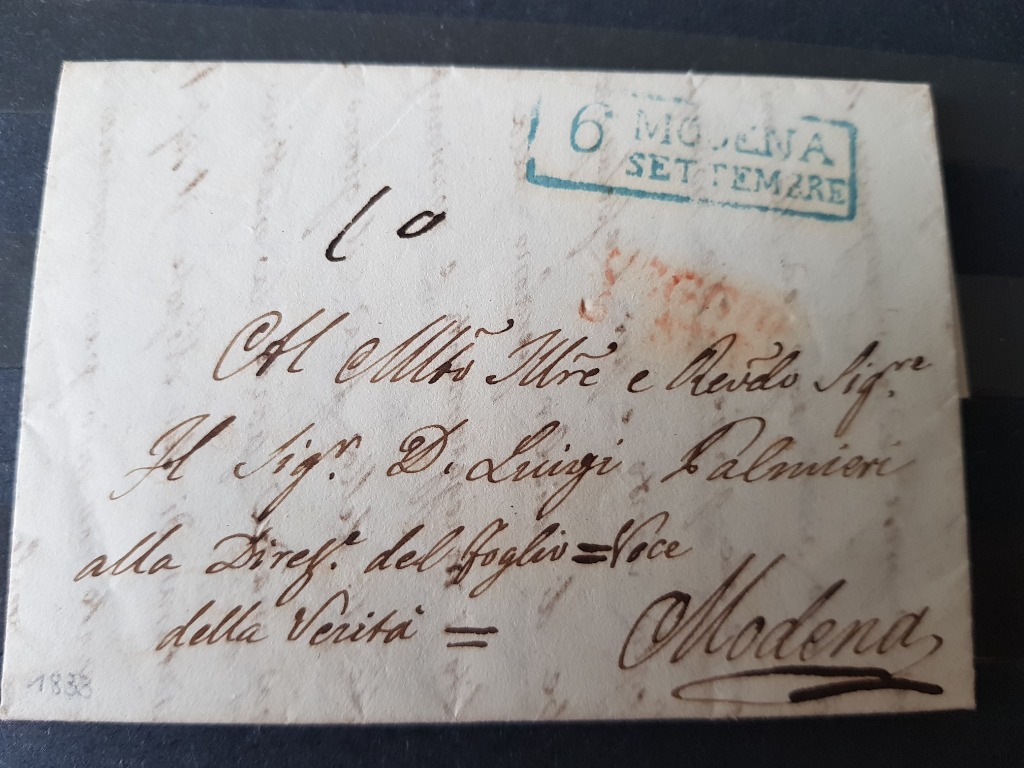 6 MODENA
SETTEMBRE
10
Al Mlto Illre e Revdo Sigre
Il Sigr. D. Luigi Palmieri
alla Direze. del foglio = Voce
della Verità =
Modena
1833